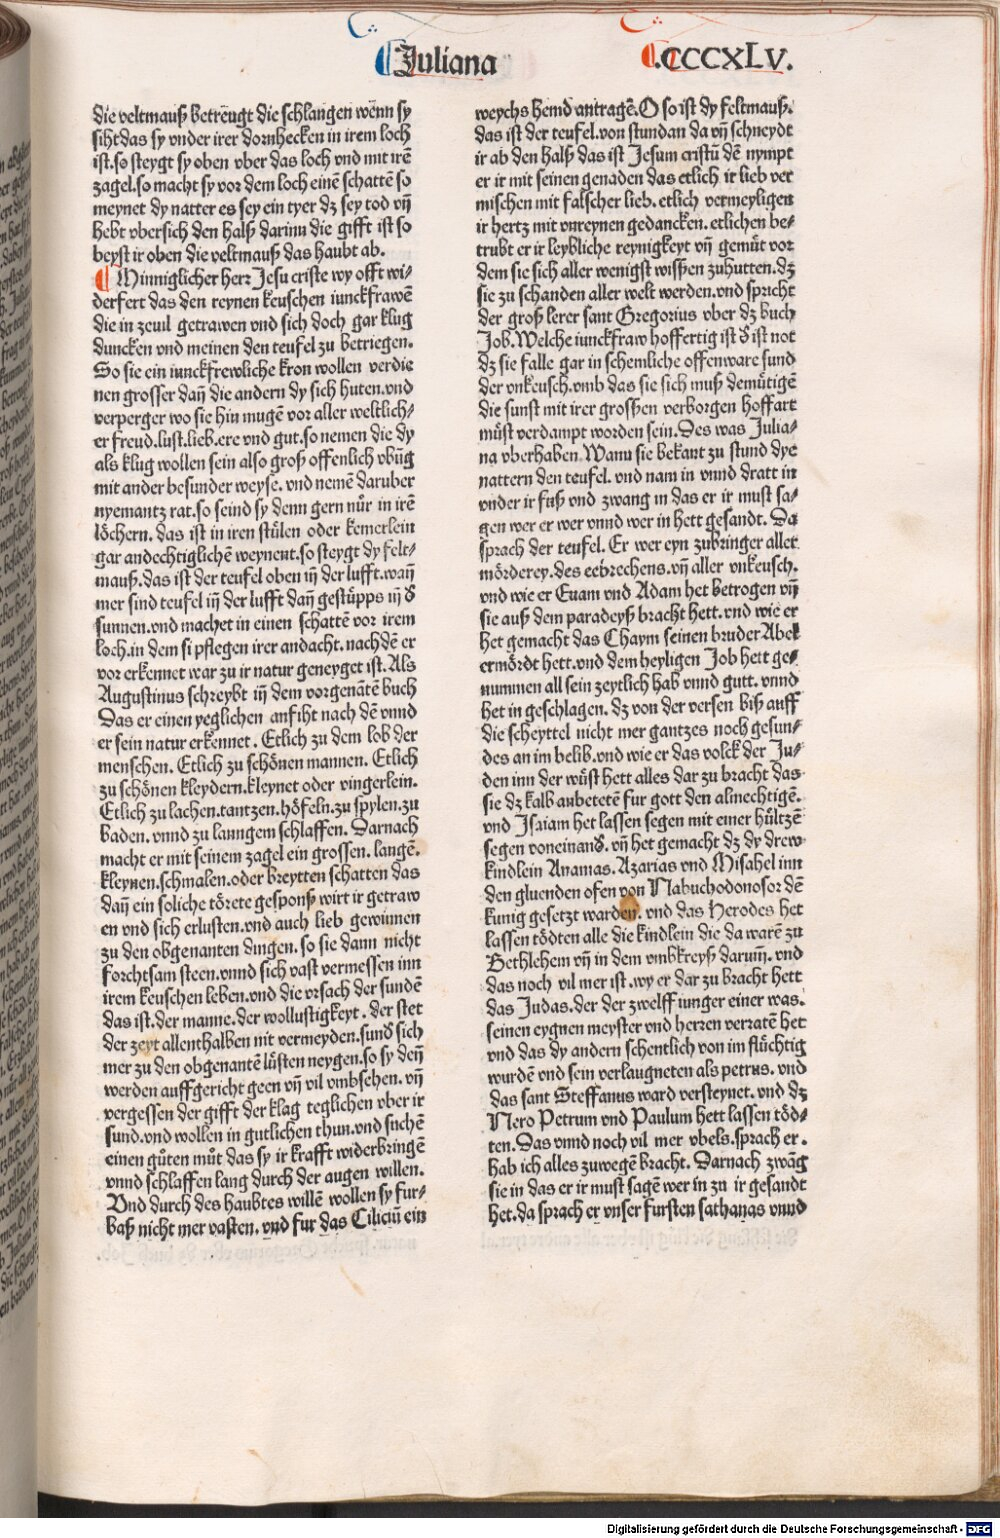 Juliana .CCCXLV.
die veltmauß betreugt die schlangen wenn sy
siht das sy vnder irer dornhecken in irem loch
ist. so steygt sy oben vber das loch vnd mit irē
zagel. so macht sy vor dem loch einē schattē so
meynet dy natter es sey ein tyer dz sey tod vñ
hebt vbersich den halß darinn die gifft ist so
beyst ir oben die veltmauß das haubt ab.
Minniglicher herr Jesu criste wy offt wi⸗
derfert das den reynen keuschen iunckfrawē
die in zeuil getrawen vnd sich doch gar klug
duncken vnd meinen den teufel zu betriegen.
So sie ein iunckfrewliche kron wollen verdie
nen grosser dañ die andern dy sich huten. vnd
verperger wo sie hin mugē vor aller weltlich⸗
er freud. lust. lieb. ere vnd gut. so nemen die dy
als klug wollen sein also groß offenlich vbūg
mit ander besunder weyse. vnd nemē daruber
nyemantz rat. so seind sy denn gern nůr in irē
löchern. das ist in iren stůlen oder kemerlein
gar andechtiglichē weynent. so steygt dy felt⸗
mauß. das ist der teufel oben iñ der lufft. wañ
mer sind teufel iñ der lufft dañ gestüpps iñ d̕
sunnen. vnd machet in einen schattē vor irem
loch. in dem si pflegen irer andacht. nachdē er
vor erkennet war zu ir natur geneyget ist. Als
Augustinus schreybt iñ dem vorgenātē buch
Das er einen yeglichen anfiht nach dē vnnd
er sein natur erkennet. Etlich zu dem lob der
menschen. Etlich zu schönen mannen. Etlich
zu schönen kleydern. kleynet oder vingerlein.
Etlich zu lachen. tantzen. höfeln. zu spylen. zu
baden. vnnd zu lanngem schlaffen. Darnach
macht er mit seinem zagel ein grossen. langē.
kleynen. schmalen. oder breytten schatten das
dañ ein soliche törete gesponß wirt ir getraw
en vnd sich erlusten. vnd auch lieb gewinnen
zu den obgenanten dingen. so sie dann nicht
forchtsam steen. vnnd sich vast vermessen inn
irem keuschen leben. vnd die vrsach der sundē
das ist. der manne. der wollustigkeyt. der stet
der zeyt allenthalben nit vermeyden. sund̕ sich
mer zu den obgenantē lüsten neygen. so sy deñ
werden auffgericht geen vñ vil vmbsehen. vñ
vergessen der gifft der klag teglichen vber ir
sund. vnd wollen in gutlichen thun. vnd suchē
einen gůten můt das sy ir krafft widerbringē
vnnd schlaffen lang durch der augen willen.
Vnd durch des haubtes willē wollen sy fur⸗
baß nicht mer vasten. vnd fur das Ciliciū ein
weychs hemd antragē. O so ist dy feltmauß.
das ist der teufel. von stundan da vñ schneydt
ir ab den halß das ist Jesum cristū dē nympt
er ir mit seinen genaden das etlich ir lieb ver
mischen mit falscher lieb. etlich vermeyligen
ir hertz mit vnreynen gedancken. etlichen be⸗
trubt er ir leybliche reynigkeyt vñ gemüt vor
dem sie sich aller wenigst wissen zuhutten. dz
sie zu schanden aller welt werden. vnd spricht
der groß lerer sant Gregorius vber dz buch
Job. Welche iunckfraw hoffertig ist d̕ ist not
dz sie falle gar in schemliche offenware sund
der vnkeusch. vmb das sie sich muß demütigē
die sunst mit irer grossen verborgen hoffart
müst verdampt worden sein. Des was Julia⸗
na vberhaben. Wann sie bekant zu stund dye
nattern den teufel. vnd nam in vnnd dratt in
vnder ir fuß vnd zwang in das er ir must sa⸗
gen wer er wer vnnd wer in hett gesandt. Da
sprach der teufel. Er wer eyn zubringer aller
mörderey. des eebrechens. vñ aller vnkeusch.
vnd wie er Euam vnd Adam het betrogen vñ
sie auß dem paradeyß bracht hett. vnd wie er
het gemacht das Chaym seinen bruder Abel
ermördt hett. vnd dem heyligen Job hett ge⸗
nummen all sein zeytlich hab vnnd gutt. vnnd
het in geschlagen. dz von der versen biß auff
die scheyttel nicht mer gantzes noch gesun⸗
des an im belib. vnd wie er das volck der Ju⸗
den inn der wüst hett alles dar zu bracht das
sie dz kalb anbetetē fur gott den almechtigē.
vnd Isaiam het lassen segen mit einer hültzē
segen voneinand̕. vñ het gemacht dz dy drew
kindlein Ananias. Azarias vnd Misahel inn
den gluenden ofen von Nabuchodonosor dē
kunig gesetzt warden. vnd das Herodes het
lassen tödten alle die kindlein die da warē zu
Bethlehem vñ in dem vmbkreyß darumb. vnd
das noch vil mer ist. wy er dar zu bracht hett
das Judas. der der zwelff iunger einer was.
seinen eygnen meyster vnd herren verratē het
vnd das dy andern schentlich von im flüchtig
wurdē vnd sein verlaugneten als petrus. vnd
das sant Steffanus ward versteynet. vnd dz
Nero Petrum vnd Paulum hett lassen töd⸗
ten. Das vnnd noch vil mer vbels. sprach er.
hab ich alles zuwegē bracht. Darnach zwāg
sie in das er ir must sagē wer in zu ir gesandt
het. da sprach er vnser fursten sathanas vnnd
Digitalisierung gefördert durch die Deutsche Forschungsgemeinschaft - DFG